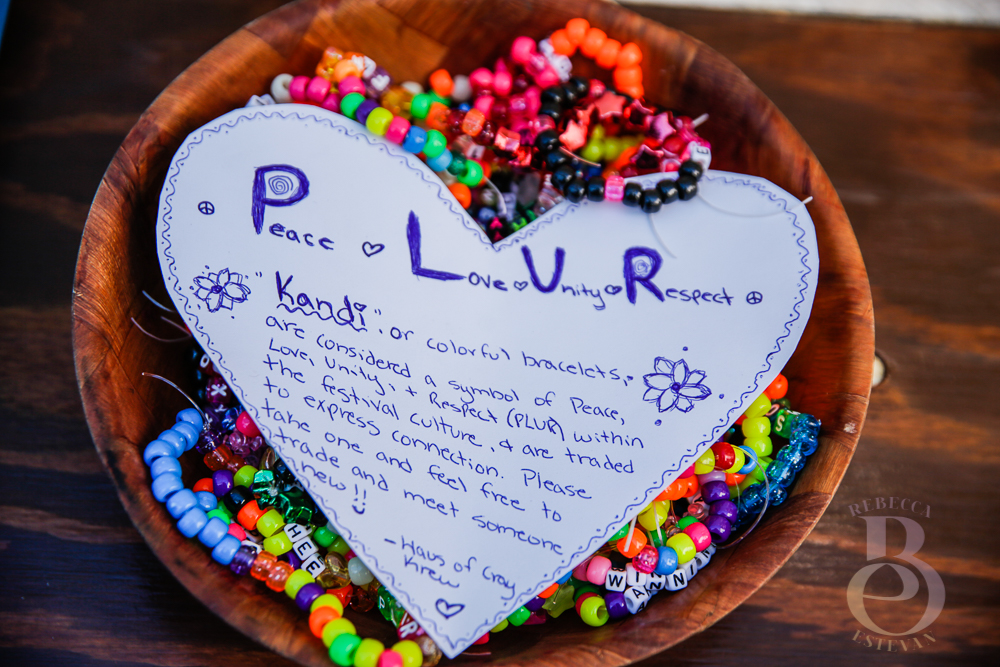 Peace ♡ Love ♡ Unity ♡ Respect
"Kandi", or colorful bracelets,
are considered a symbol of Peace,
Love, Unity, + Respect (PLUR) within
the festival culture, & are traded
to express connection. Please
take one and feel free to
trade and meet someone
new!! :)
-Haus of Cray
Krew
♡
HEE
REBECCA
BE
ESTEVAN